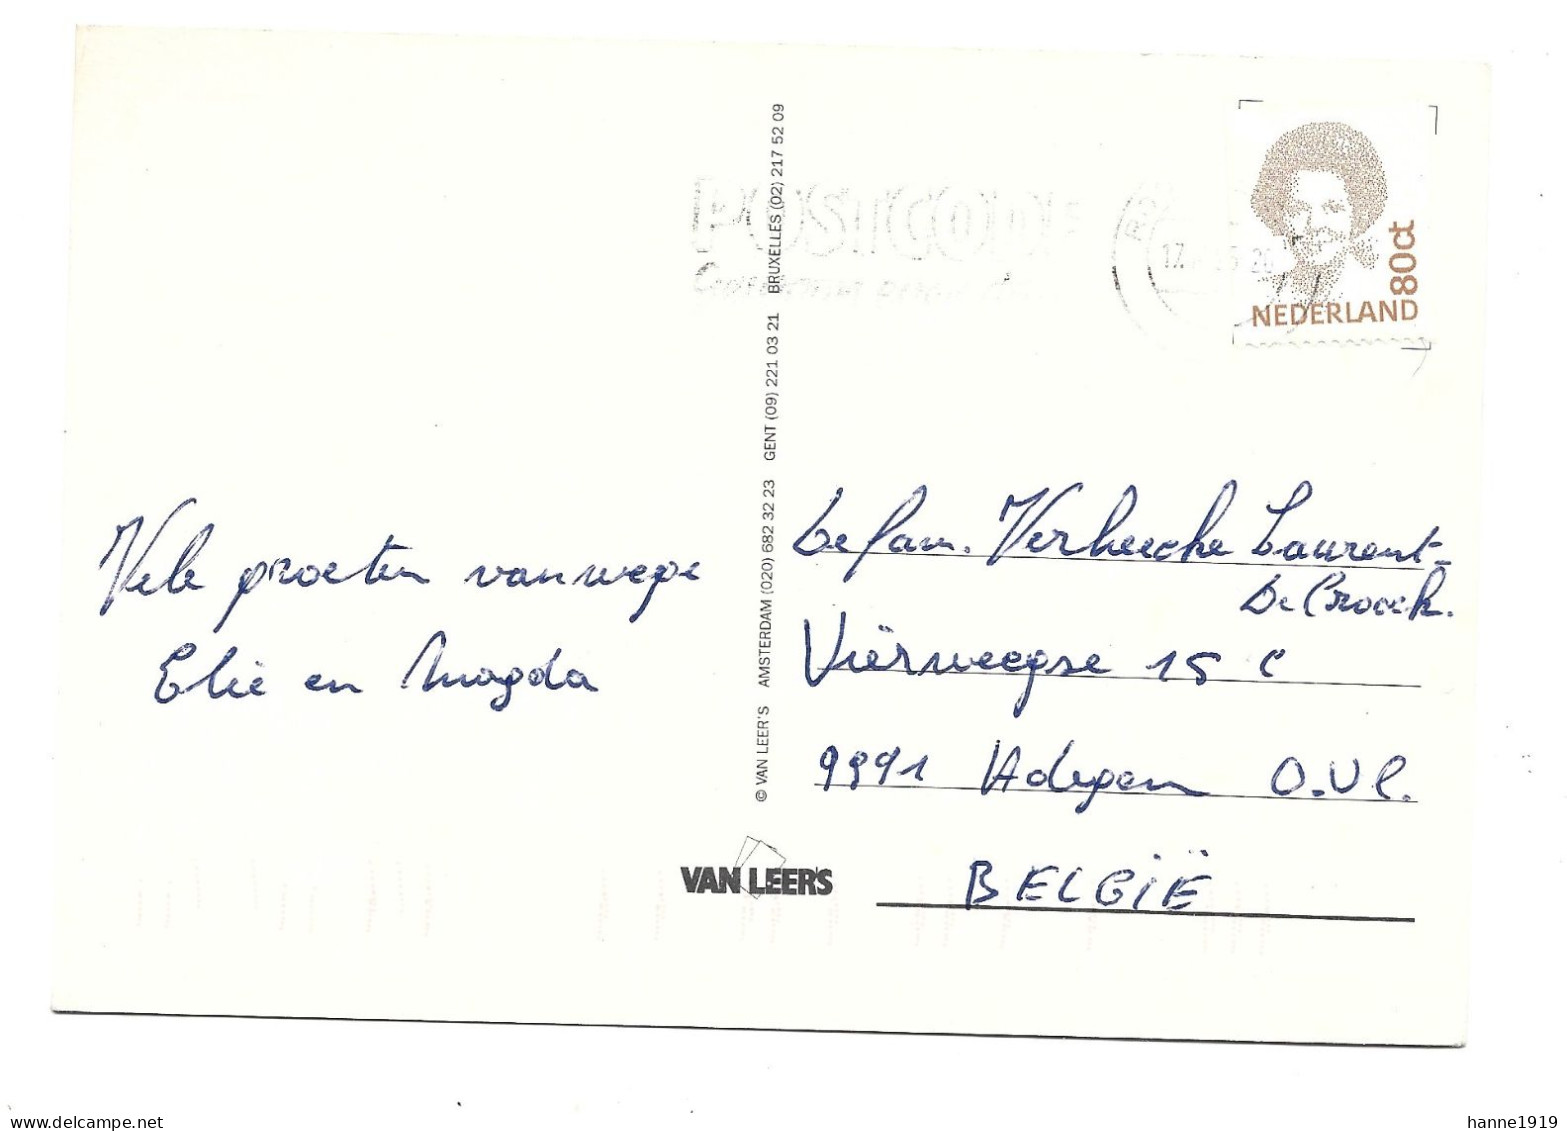 Vele groeten vanwege
Elie en Magda
© VAN LEER'S AMSTERDAM (020) 682 32 23 GENT (09) 221 03 21 BRUXELLES (02) 217 52 09
VAN LEER'S
POSTCODE
80ct
NEDERLAND
De fam. Verheecke Laurent-
De Croock.
Viërweegse 15 C
9991 Adegem O.Vl.
BELGIË
hanne1919
delcampe.net